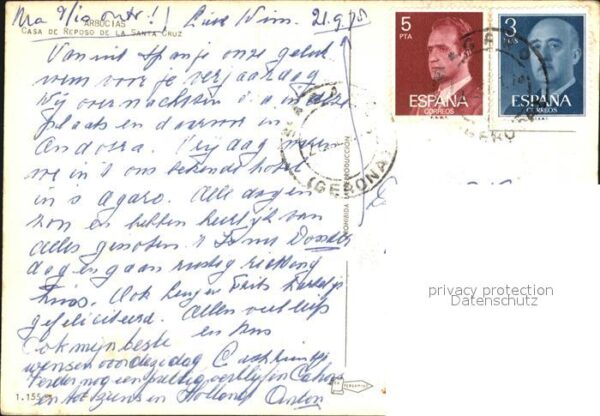 Lieve Wim. 21.9.78
ARBUCIAS
CASA DE REPOSO DE LA SANTA CRUZ
Vanuit Spanje onze geluk
wensen voor je verjaardag
Wij overnachten in deze
plaats en daarom in
Andorra. Vrijdag waren
we in 't ons bekende hotel
in s agaro. Alle dagen
zon en hebben heerlijk van
alles genoten 't Is nu Donder
dag en gaan rustig richting
huis. Ook Frits hartelijk
gefeliciteerd. Allen veel liefs
en kus
Ook mijn beste
wensen voor deze dag
Verder nog een prettig verblijf in
en tot ziens in Holland Anton
5
PTA
ESPAÑA
CORREOS
3
PTAS
ESPAÑA
CORREOS
(GERONA)
PROHIBIDA LA REPRODUCCION
privacy protection
Datenschutz
1.155